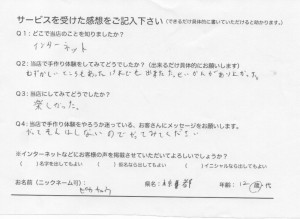 サービスを受けた感想をご記入下さい(できるだけ具体的に書いていただけると助かります。)
Q1:どこで当店のことを知りましたか?
インターネット
Q2:当店で手作り体験をしてみてどうでしたか?(出来るだけ具体的にお願いします)
むずかしいところもあったけれども出来た。
Q3:当店にしてみてどうでしたか?
楽しかった。
Q4:当店で手作りをやろうか迷っている、お客さんにメッセージをお願いします。
※インターネットなどにお客様の声を掲載させていただいてよろしいでしょうか?
( )名字を出してもよい ( )仮名なら出してもよい ( )イニシャルなら出してもよい
お名前(ニックネーム可): 県名: 都 年齢:12 代